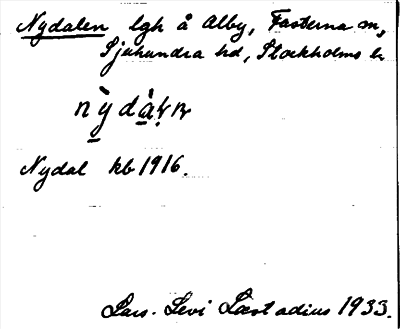 Nydalen lgh å Alby, Fasterna sn,
Sjuhundra hd, Stockholms l.
Nydal kb 1916.
Lars-Levi Læstadius 1933.